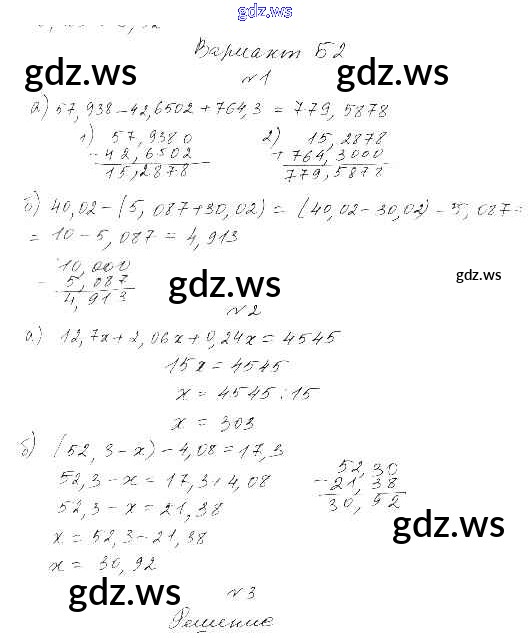 gdz.ws
Вариант Б2
gdz.ws gdz.ws
№1
а) 57,938-42,6502+764,3=779,5878
1) 57,9380 2) 15,2878
-42,6502 +764,3000
15,2878 779,5878
б) 40,02-(5,087+30,02)=(40,02-30,02)-5,087=
=10-5,087=4,913
10,000
-5,087
4,913
gdz.ws gdz.ws
№2
а) 12,7x+2,06x+0,24x=4545
15x=4545
x=4545:15
x=303
б) (52,3-x)-4,08=17,3
52,3-x=17,3+4,08 52,30
52,3-x=21,38 -21,38
x=52,3-21,38 30,92
x=30,92
gdz.ws
gdz.ws
№3
Решение